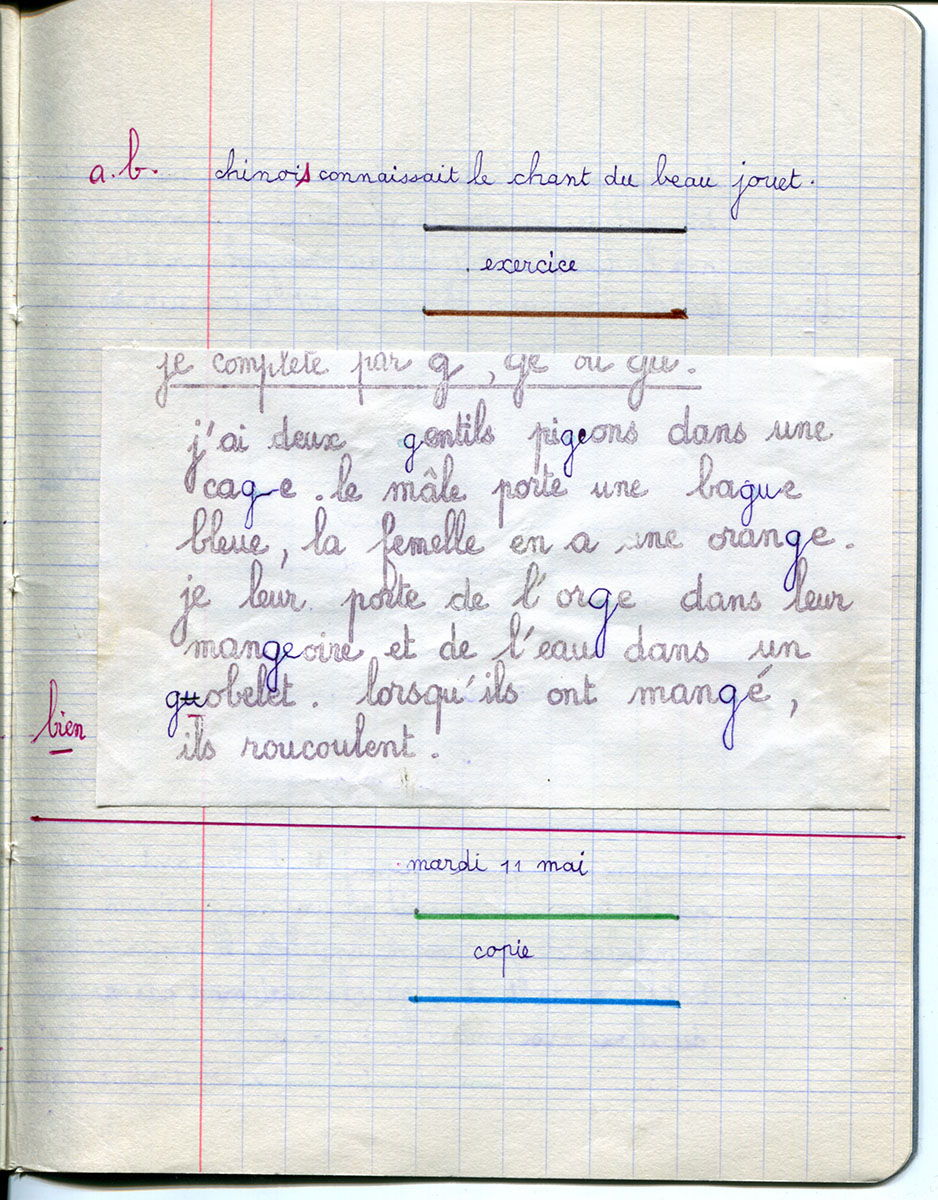 a.b. chinois connaissait le chant du beau jouet.
exercice
je complète par g, ge ou gu.
j'ai deux gentils pigeons dans une
cage. le mâle porte une bague
bleue, la femelle en a une orange.
je leur porte de l'orge dans leur
mangeoire et de l'eau dans un
guobelet. lorsqu'ils ont mangé,
bien
ils roucoulent.
mardi 11 mai
copie